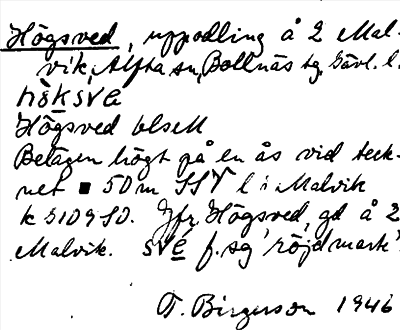 Högsved, uppodling å 2 Mal-
vik, Alfta sn, Bollnäs tg, Gävl. l.
hö̀ksve
Högsved blsKU
Belägen högt på en ås vid teck-
net ■ 50 m SSV l i Malvik
k 5109 SO. Jfr Högsved, gd å 2
Malvik. sve f. sg 'röjd mark'.
T. Birgerson 1946